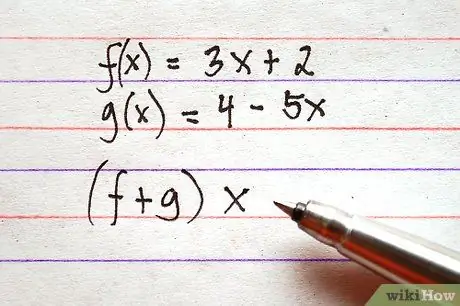 f(x) = 3x + 2
g(x) = 4 - 5x
(f+g) x
wikiHow